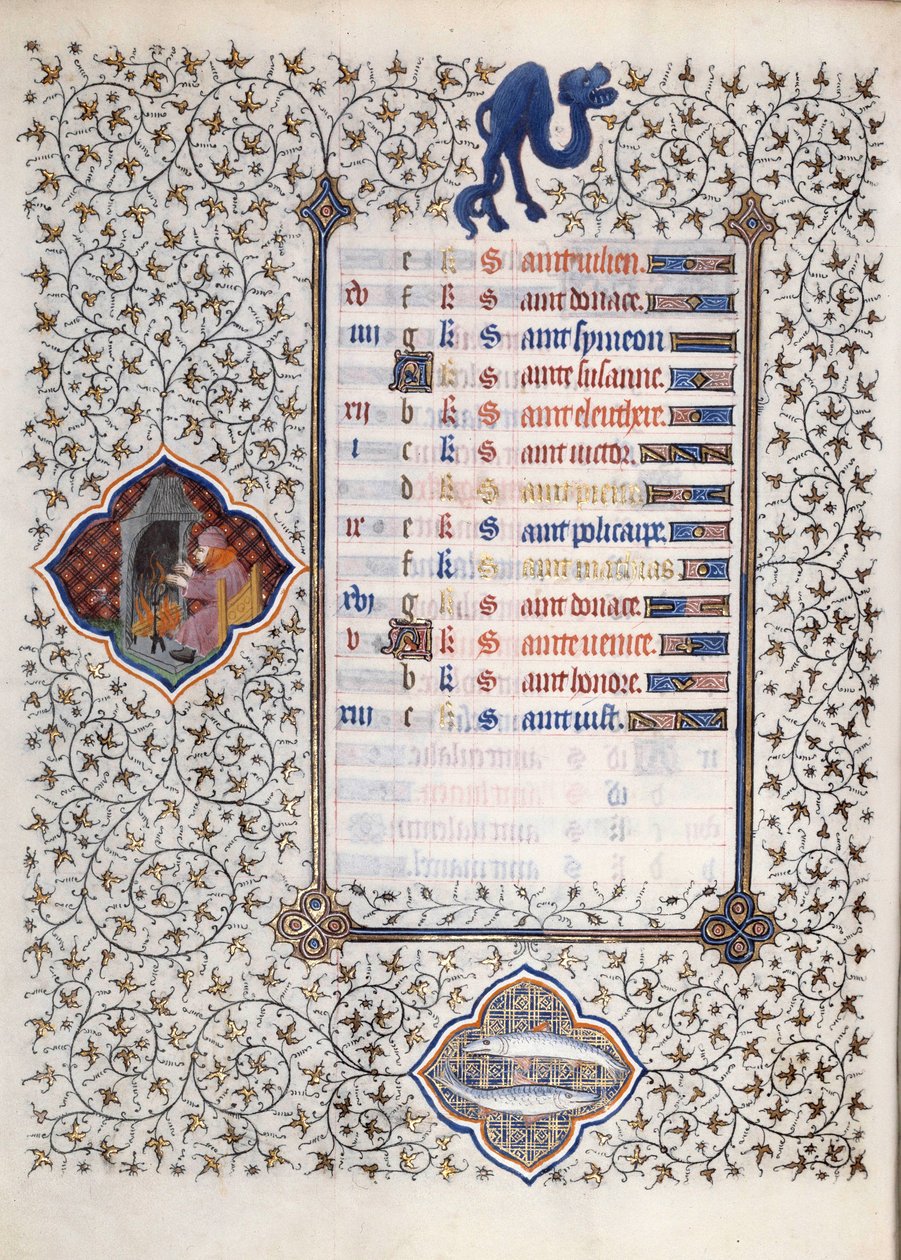 e k Saint iulien.
xv f k Saint donace.
iiii g k Saint symeon
A k Sainte susanne.
xii b k Saint eleuthere.
i c k Saint uictor.
d k Saint pierre
ix e k Saint policarpe.
f k Saint mathias.
xvi g k Saint donace.
v A k Sainte uenice.
b k Saint honore.
xiii c k Saint iust.